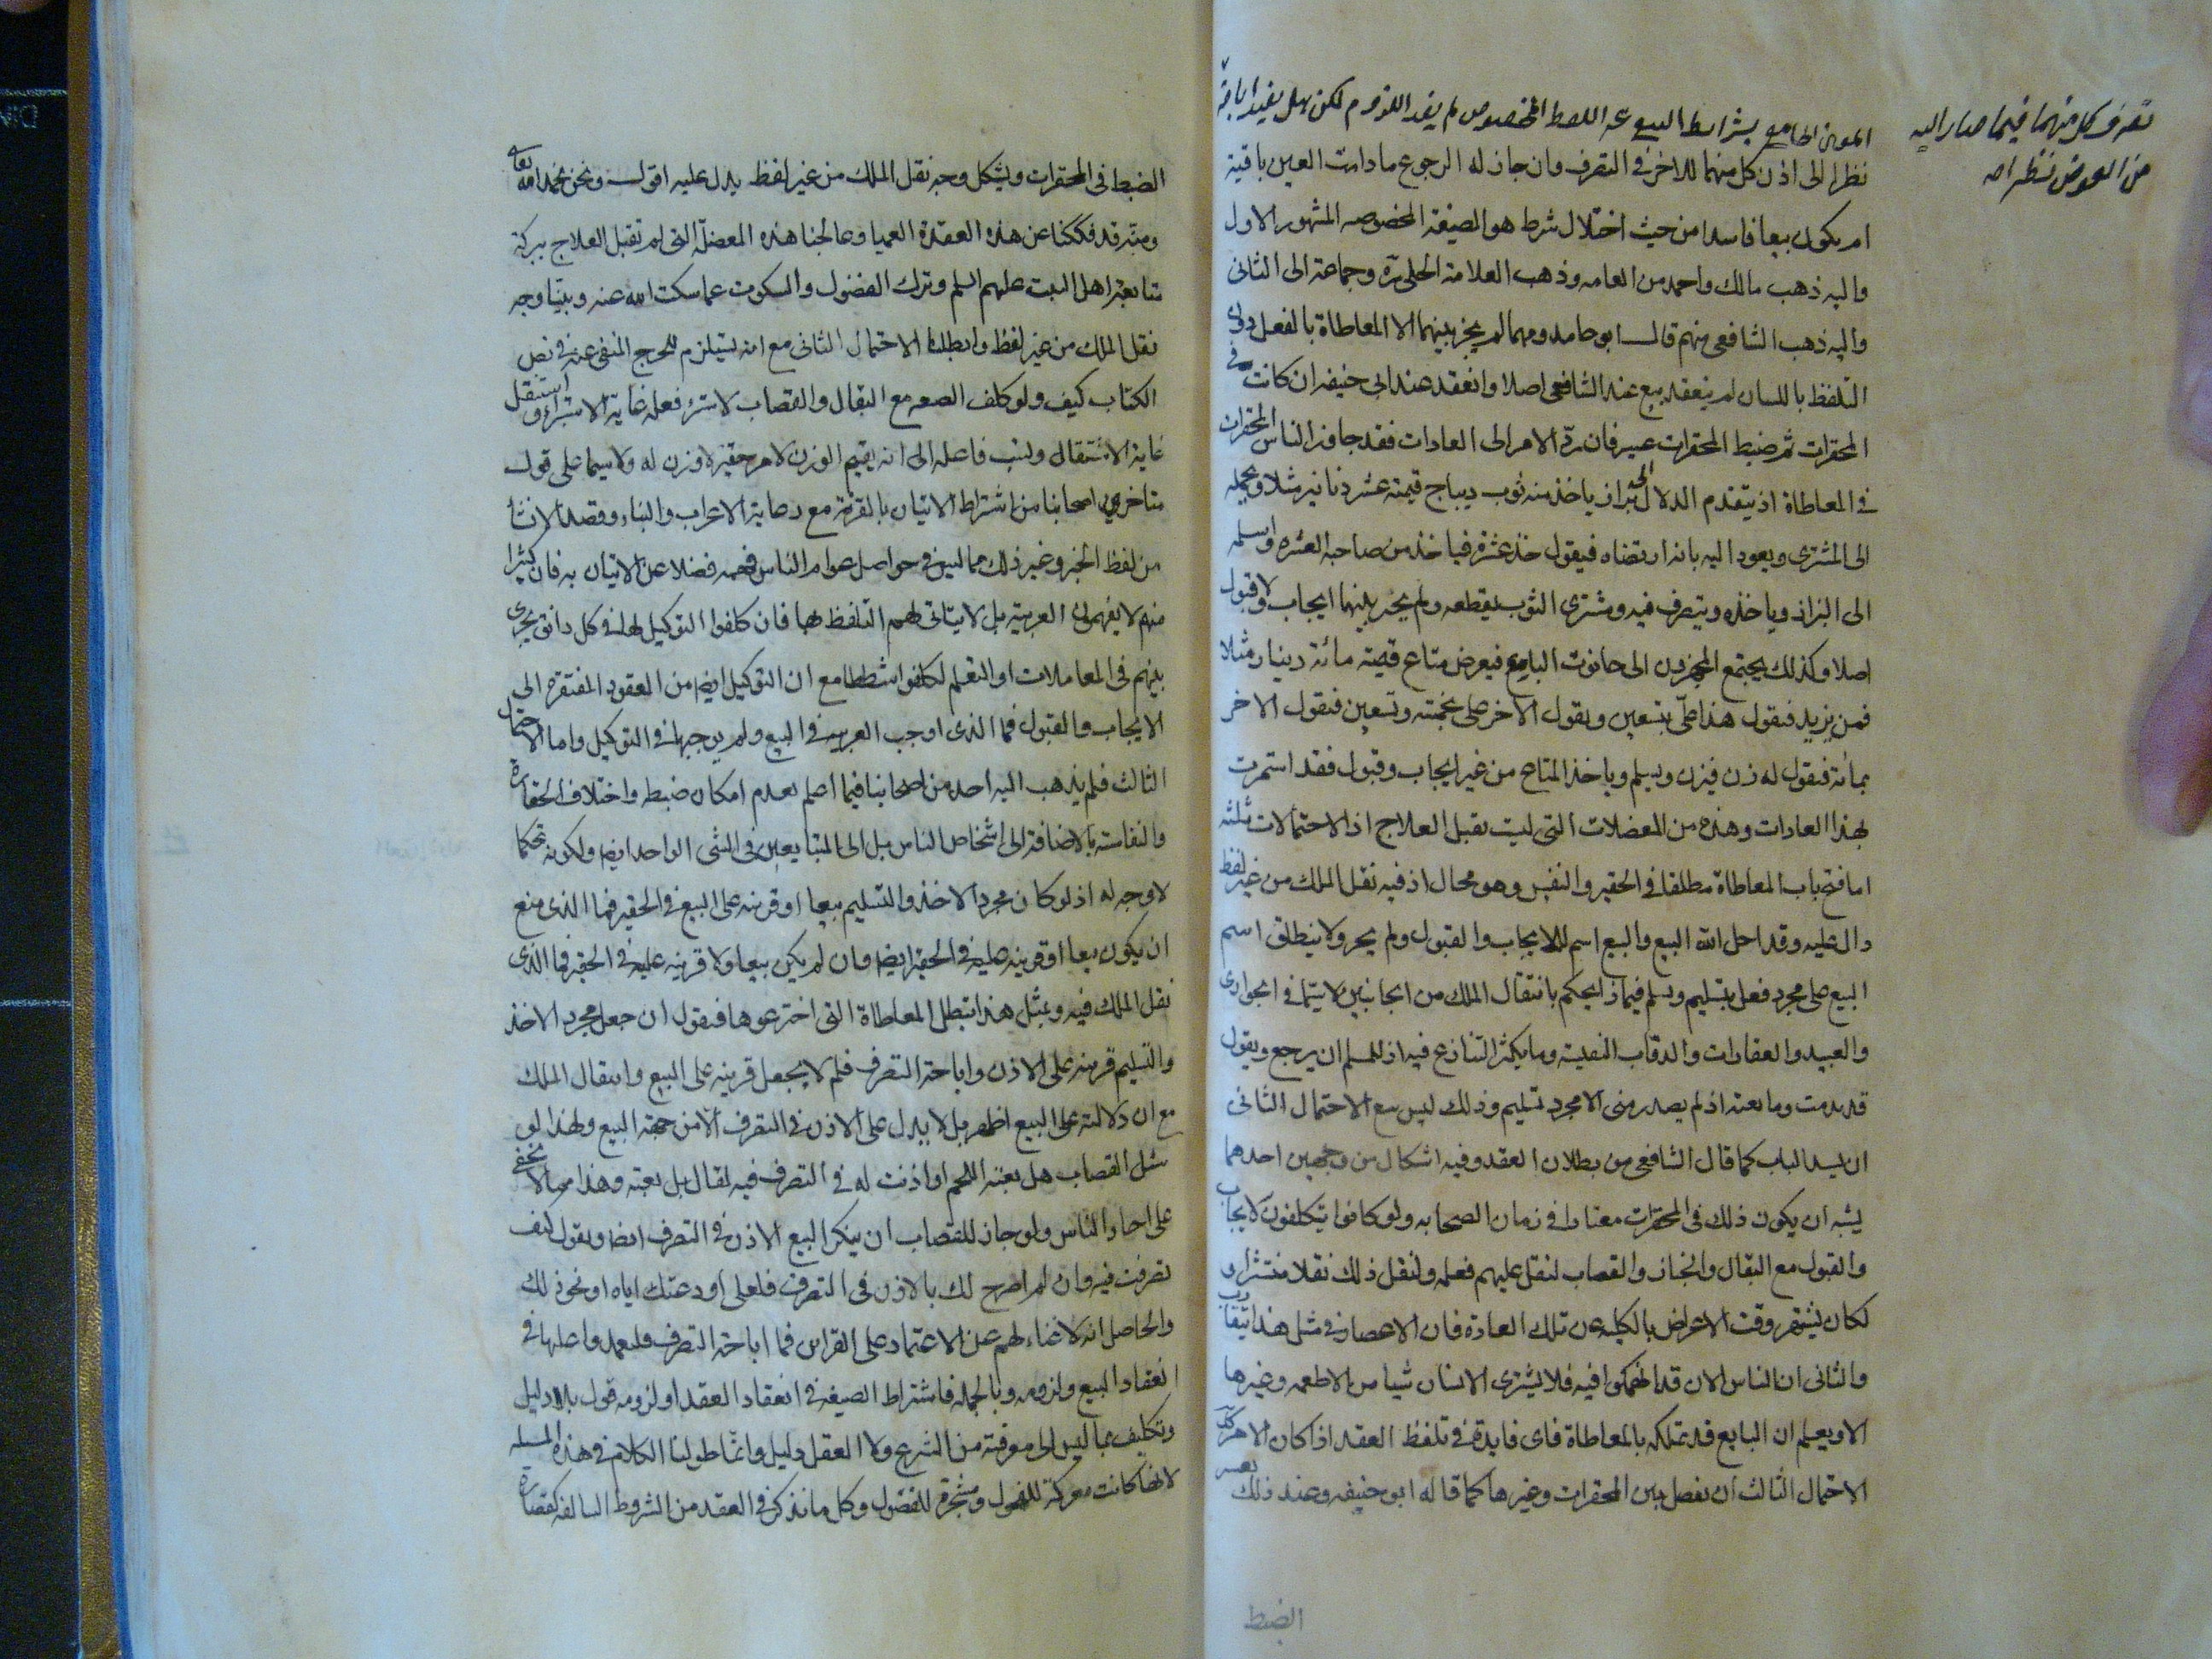 المعنى الجامع بشرائط البيع عد اللفظ المخصوص لم يفد اللزوم لكن هل يفيد اباحة
تصرف كل منهما فيما صار اليه
من العوض نظرا صه
نظرا الى اذن كل منهما للاخر فى التصرف وان جاز له الرجوع مادامت العين باقية
ام يكون بيعا فاسدا من حيث اختلال شرط هو الصيغة المخصوصه المشهور الاول
واليه ذهب مالك واحمد من العامه وذهب العلامة الحلى ره وجماعة الى الثانى
واليه ذهب الشافعى منهم قال ابو حامد ومهما لم يجر بينهما الا المعاطاة بالفعل دون
التلفظ باللسان لم ينعقد بيع عند الشافعى اصلا وانعقد عند ابى حنيفه ان كانت فى
المحقرات ثم ضبط المحقرات عسير فان رد الامر الى العادات فقد جاوز الناس المحقرات
فى المعاطاة اذ يتقدم الدلال الى البزاز ياخذ منه ثوب ديباج قيمته عشر دنانير مثلا ويحمله
الى المشترى ويعود اليه بانه ارتضاه فيقول خذ عشرة فياخذ من صاحبه العشره ويسلمه
الى البزاز وياخذه ويتصرف فيه ومشترى الثوب يقطعه ولم يجر بينهما ايجاب ولا قبول
اصلا وكذلك يجتمع المجهزون الى حانوت البايع فيعرض متاع قيمته مائة دينار مثلا
فمن يزيد فيقول هذا على بتسعين ويقول الاخر على بخمسة وتسعين فيقول الاخر
بمائة فيقول له زن فيزن ويسلم وياخذ المتاع من غير ايجاب وقبول فقد استمرت
بهذا العادات وهذه من المعضلات التى ليست تقبل العلاج اذ الاحتمالات ثلثه
اما فتح باب المعاطاة مطلقا فى الحقير والنفيس وهو محال اذ فيه نقل الملك من غير لفظ
دال عليه وقد احل الله البيع والبيع اسم للايجاب والقبول ولم يجر ولا ينطلق اسم
البيع على مجرد فعل بتسليم وتسلم فبماذا يحكم بانتقال الملك من الجانبين لا سيما فى الجوارى
والعبيد والعقارات والدواب النفيسة وما يكثر التنازع فيه اذ للمسلم ان يرجع ويقول
قد ندمت وما بعته اذ لم يصدر منى الا مجرد تسليم وذلك ليس ببيع الاحتمال الثانى
ان يسد الباب كما قال الشافعى من بطلان العقد وفيه اشكال من وجهين احدهما
يشبه ان يكون ذلك فى المحقرات معتادا فى زمان الصحابه ولو كانوا يتكلفون الايجاب
والقبول مع البقال والخباز والقصاب لثقل عليهم فعله ولنقل ذلك نقلا منتشرا و
لكان يشتهر وقت الاعراض بالكليه عن تلك العادة فان الاعصار فى مثل هذا يتقارب
والثانى ان الناس الان قد انهمكوا فيه فلا يشترى الانسان شيئا من الاطعمه وغيرها
الا ويعلم ان البايع قد تملكه بالمعاطاة فاى فايدة فى تلفظ العقد اذا كان الامر كذلك
الاحتمال الثالث ان يفصل بين المحقرات وغيرها كما قاله ابو حنيفه وعند ذلك يعسر
الضبط
الضبط فى المحقرات ويشكل وجه نقل الملك من غير لفظ يدل عليه اقول ونحن بحمد الله تعالى
ومنه قد فككنا عن هذه العقدة العميا وعالجنا هذه المعضلة التى لم تقبل العلاج ببركة
متابعة اهل البيت عليهم السلم وترك الفضول والسكوت عما سكت الله عنه وبينا وجه
نقل الملك من غير لفظ وابطلنا الاحتمال الثانى مع انه يستلزم للحرج المنفى عنه فى نص
الكتاب كيف ولو كلف الصعه مع البقال والقصاب لاستبرء فعله غاية الاستبراء واستثقل
غاية الاستثقال ونسب فاعله الى انه يقيم الوزن لامر حقير لا وزن له ولا سيما على قول
متاخرى اصحابنا من اشتراط الاتيان بالعربية مع رعاية الاعراب والبناء وقصد الانشاء
من لفظ الخبر وغير ذلك مما ليس فى حواصل عوام الناس فهمه فضلا عن الاتيان به فان كثيرا
منهم لا يفهمون العربية بل لا يتاتى لهم التلفظ بها فان كلفوا التوكيل لها فى كل دانق يجرى
بينهم فى المعاملات او التعلم لكلفوا شططا مع ان التوكيل ايضا من العقود المفتقرة الى
الايجاب والقبول فما الذى اوجب العربيه فى البيع ولم يوجبها فى التوكيل واما الاحتمال
الثالث فلم يذهب اليه احد من اصحابنا فيما اعلم لعدم امكان ضبطه واختلاف الحقارة
والنفاسة بالاضافة الى اشخاص الناس بل الى المتبايعين فى الشى الواحد ايضا ولكونه تحكما
لا وجه له اذ لو كان مجرد الاخذ والتسليم بيعا او قرينه على البيع فى الحقير فما الذى منع
ان يكون بيعا او قرينه عليه فى الحقير ايضا وان لم يكن بيعا ولا قرينه عليه فى الحقير فما الذى
نقل الملك فيه وبمثل هذا تبطل المعاطاة التى اخترعوها فنقول ان جعل مجرد الاخذ
والتسليم قرينه على الاذن واباحة التصرف فلم لا يجعل قرينه على البيع وانتقال الملك
مع ان دلالته على البيع اظهر بل لا يدل على الاذن فى التصرف الا من جهة البيع ولهذا لو
سئل القصاب هل بعته اللحم او اذنت له فى التصرف فيه لقال بل بعته وهذا مما لا يخفى
على احاد الناس ولو جاز للقصاب ان ينكر البيع الاذن فى التصرف ايضا ويقول كيف
تصرفت فيه وان لم اصرح لك بالاذن فى التصرف فلعلى اودعتك اياه او نحو ذلك
والحاصل انه لا غناء لهم عن الاعتماد على القراين فى اباحة التصرف فليعمدوا عليها فى
انعقاد البيع ولزومه وبالجمله فاشتراط الصيغه فى انعقاد العقد او لزومه قول بلا دليل
وتكليف بما ليس الى معرفته من الشرع ولا العقل دليل وانما طولنا الكلام فى هذه المسئله
لانها كانت معركة للفحول ومشجرة للفضول وكل ما نذكر فى العقد من الشروط السالفه كقضاء